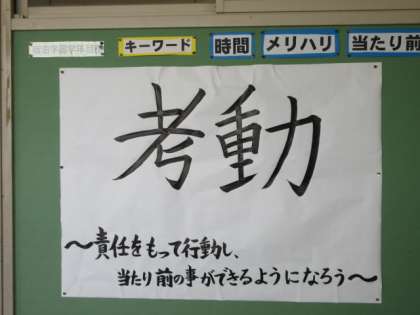 キーワード 時間 メリハリ 当たり前
考動
～責任をもって行動し、
当たり前の事ができるようになろう～